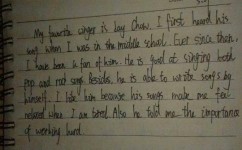 My favorite singer is Jay Chow. I first heard his
song when I was in the middle school. Ever since then,
I have been a fan of him. He is good at singing both
pop and rock songs. Besides, he is able to write songs by
himself. I like him because his songs make me feel
relaxed when I am tired. Also he told me the importance
of working hard.